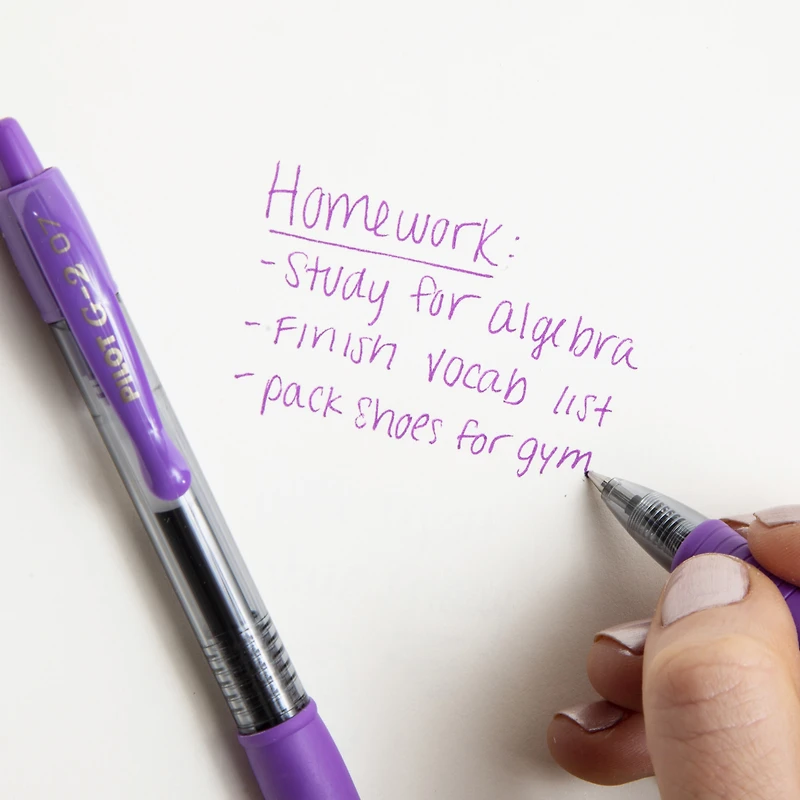 Homework:
- Study for algebra
- Finish vocab list
- pack shoes for gym
PILOT G-2 07